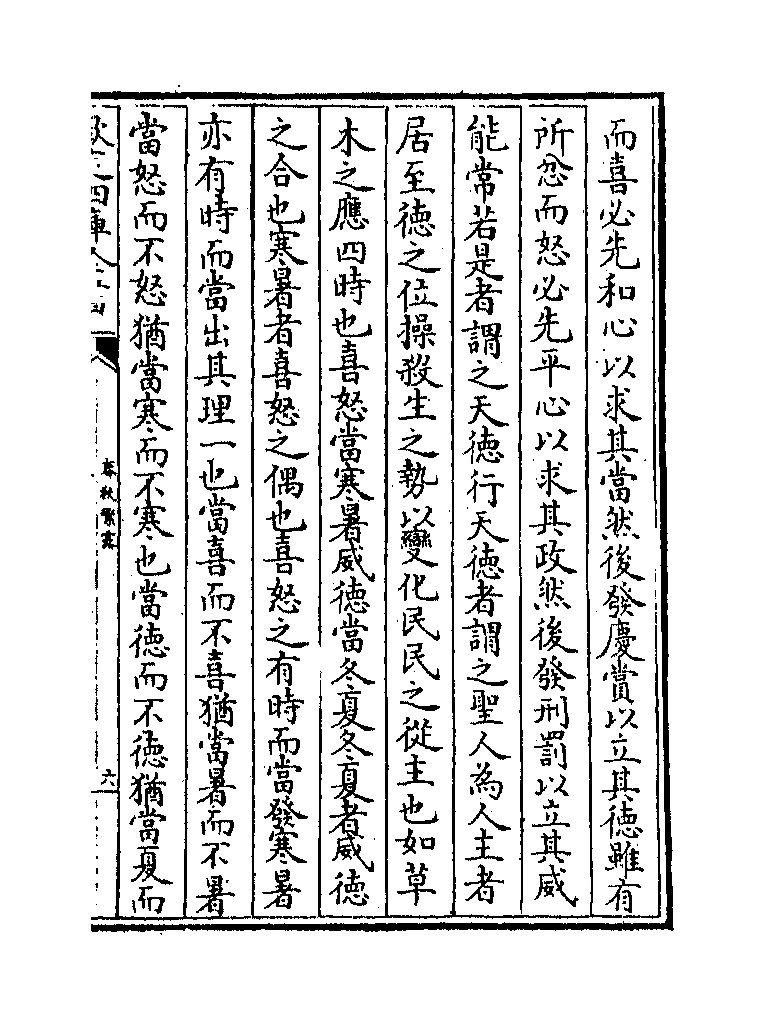 而喜必先和心以求其當然後發慶賞以立其徳雖有
所忿而怒必先平心以求其政然後發刑罰以立其威
能常若是者謂之天徳行天徳者謂之聖人為人主者
居至徳之位操殺生之勢以變化民民之從主也如草
木之應四時也喜怒當寒暑威徳當冬夏冬夏者威徳
之合也寒暑者喜怒之偶也喜怒之有時而當發寒暑
亦有時而當出其理一也當喜而不喜猶當暑而不暑
當怒而不怒猶當寒而不寒也當徳而不徳猶當夏而
四庫全
春秋繁露
六